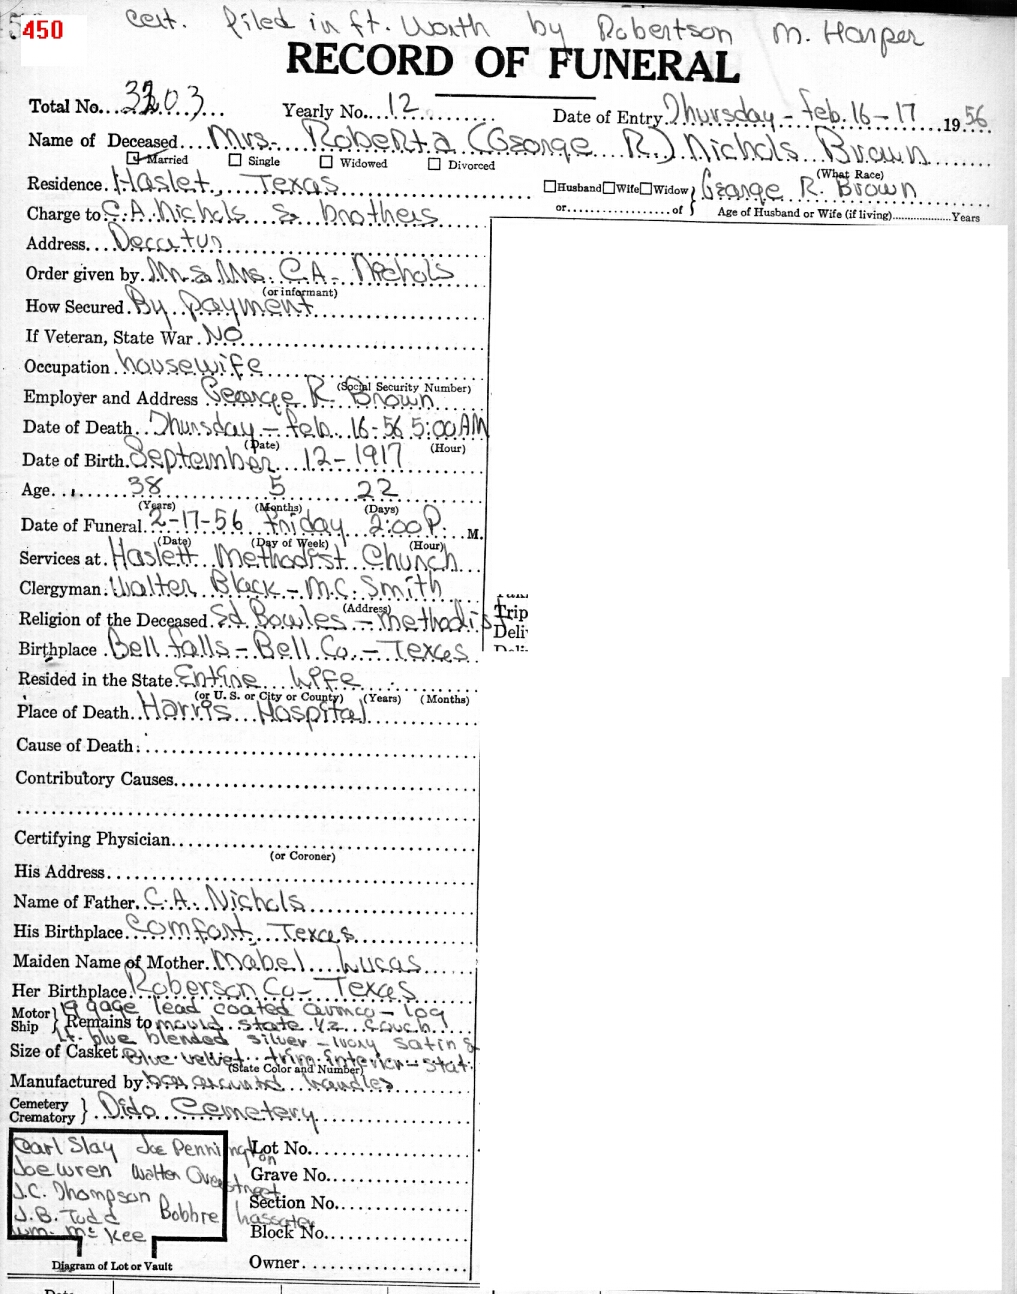 450
Cert. filed in ft. Worth by Robertson M. Harper
RECORD OF FUNERAL
Total No. 3203 Yearly No. 12 Date of Entry Thursday - Feb. 16-17 1956
Name of Deceased Mrs. Roberta (George R.) Nichols Brown
Married Single Widowed Divorced (What Race)
Residence Haslet, Texas Husband Wife Widow } George R. Brown
or of Age of Husband or Wife (if living) Years
Charge to C.A. Nichols & brothers
Address Decatur
Order given by M. & Mrs. C.A. Nichols
(or informant)
How Secured By payment
If Veteran, State War NO
Occupation housewife
(Social Security Number)
Employer and Address George R. Brown
Date of Death Thursday - feb. 16-56 5:00 AM
(Date) (Hour)
Date of Birth September 12-1917
Age 38 5 22
(Years) (Months) (Days)
Date of Funeral 2-17-56 friday 2:00 P. M.
(Date) (Day of Week) (Hour)
Services at Haslett Methodist Church
Clergyman Walter Black - M.C. Smith
(Address)
Religion of the Deceased Ed. Bowles - methodist
Trip
Birthplace Bell falls - Bell Co. - Texas
Resided in the State Entire Life
(or U. S. or City or County) (Years) (Months)
Place of Death Harris Hospital
Cause of Death
Contributory Causes
Certifying Physician
(or Coroner)
His Address
Name of Father C.A. Nichols
His Birthplace Comfort, Texas
Maiden Name of Mother Mabel Lucas
Her Birthplace Roberson Co - Texas
19 gage lead coated armco - 109
Motor Ship } Remains to mould state 1/2 couch
Lt. blue blended silver - Ivory satin &
Size of Casket Blue velvet trim interior - stat.
(State Color and Number)
Manufactured by handles
Cemetery Crematory } Dido Cemetery
Carl Slay Joe Pennington Lot No.
Joe Wren Walter Overstreet Grave No.
J.C. Thompson Section No.
J.B. Todd Bobbie Lassater
Wm. McKee Block No.
Diagram of Lot or Vault Owner